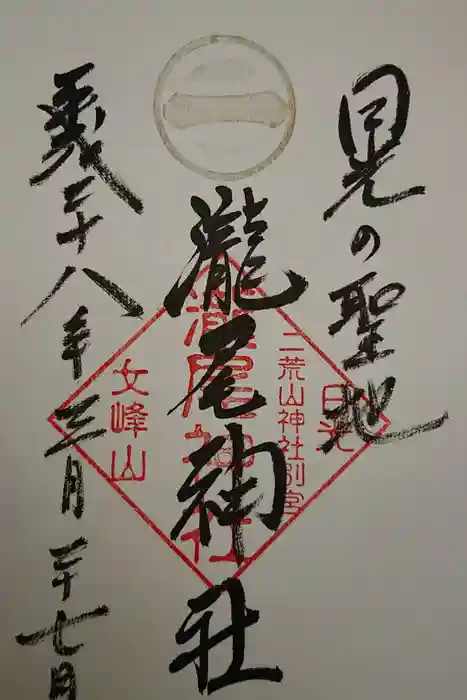 日光の聖地
瀧尾神社
平成二十八年三月二十七日
日光
二荒山神社別宮
瀧尾神社
女峰山